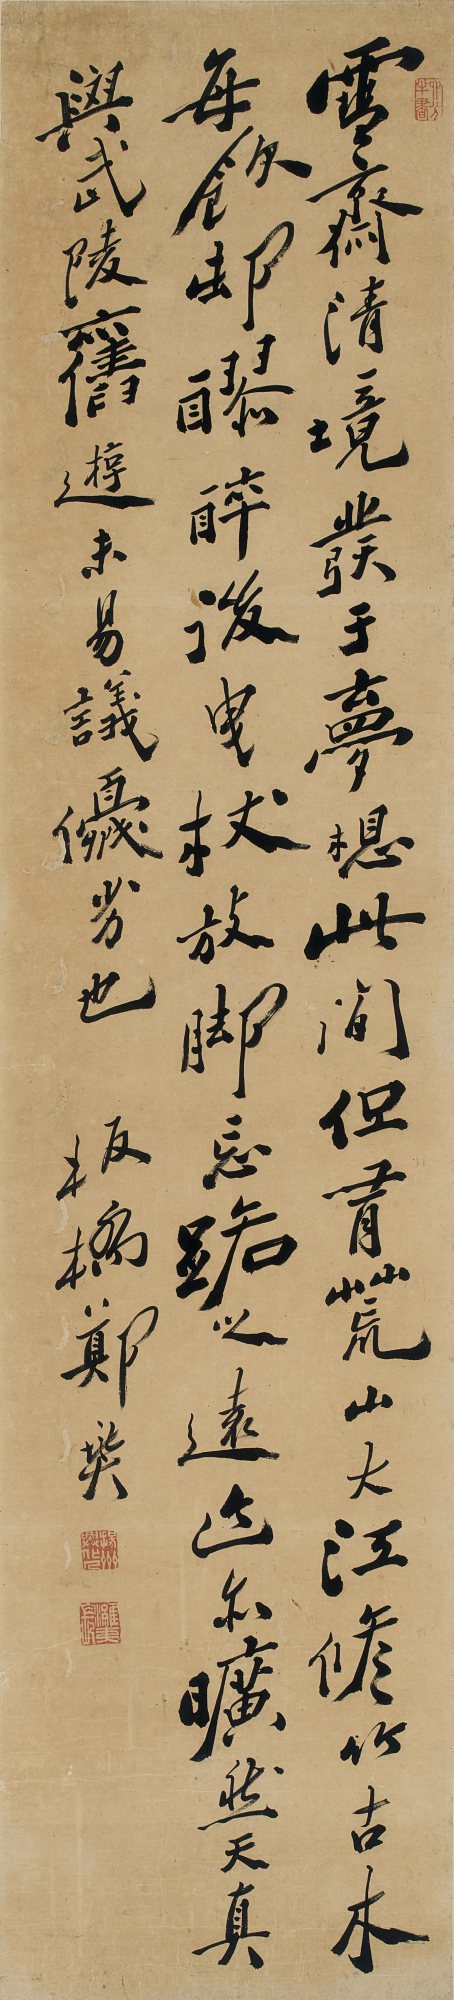 六分半書
雪齋清境發于夢想此間但有荒山大江修竹古木
每飲邨醪醉後曳杖放脚忘路之遠近亦曠然天真
與武陵舊遊未易議優劣也　板橋鄭燮